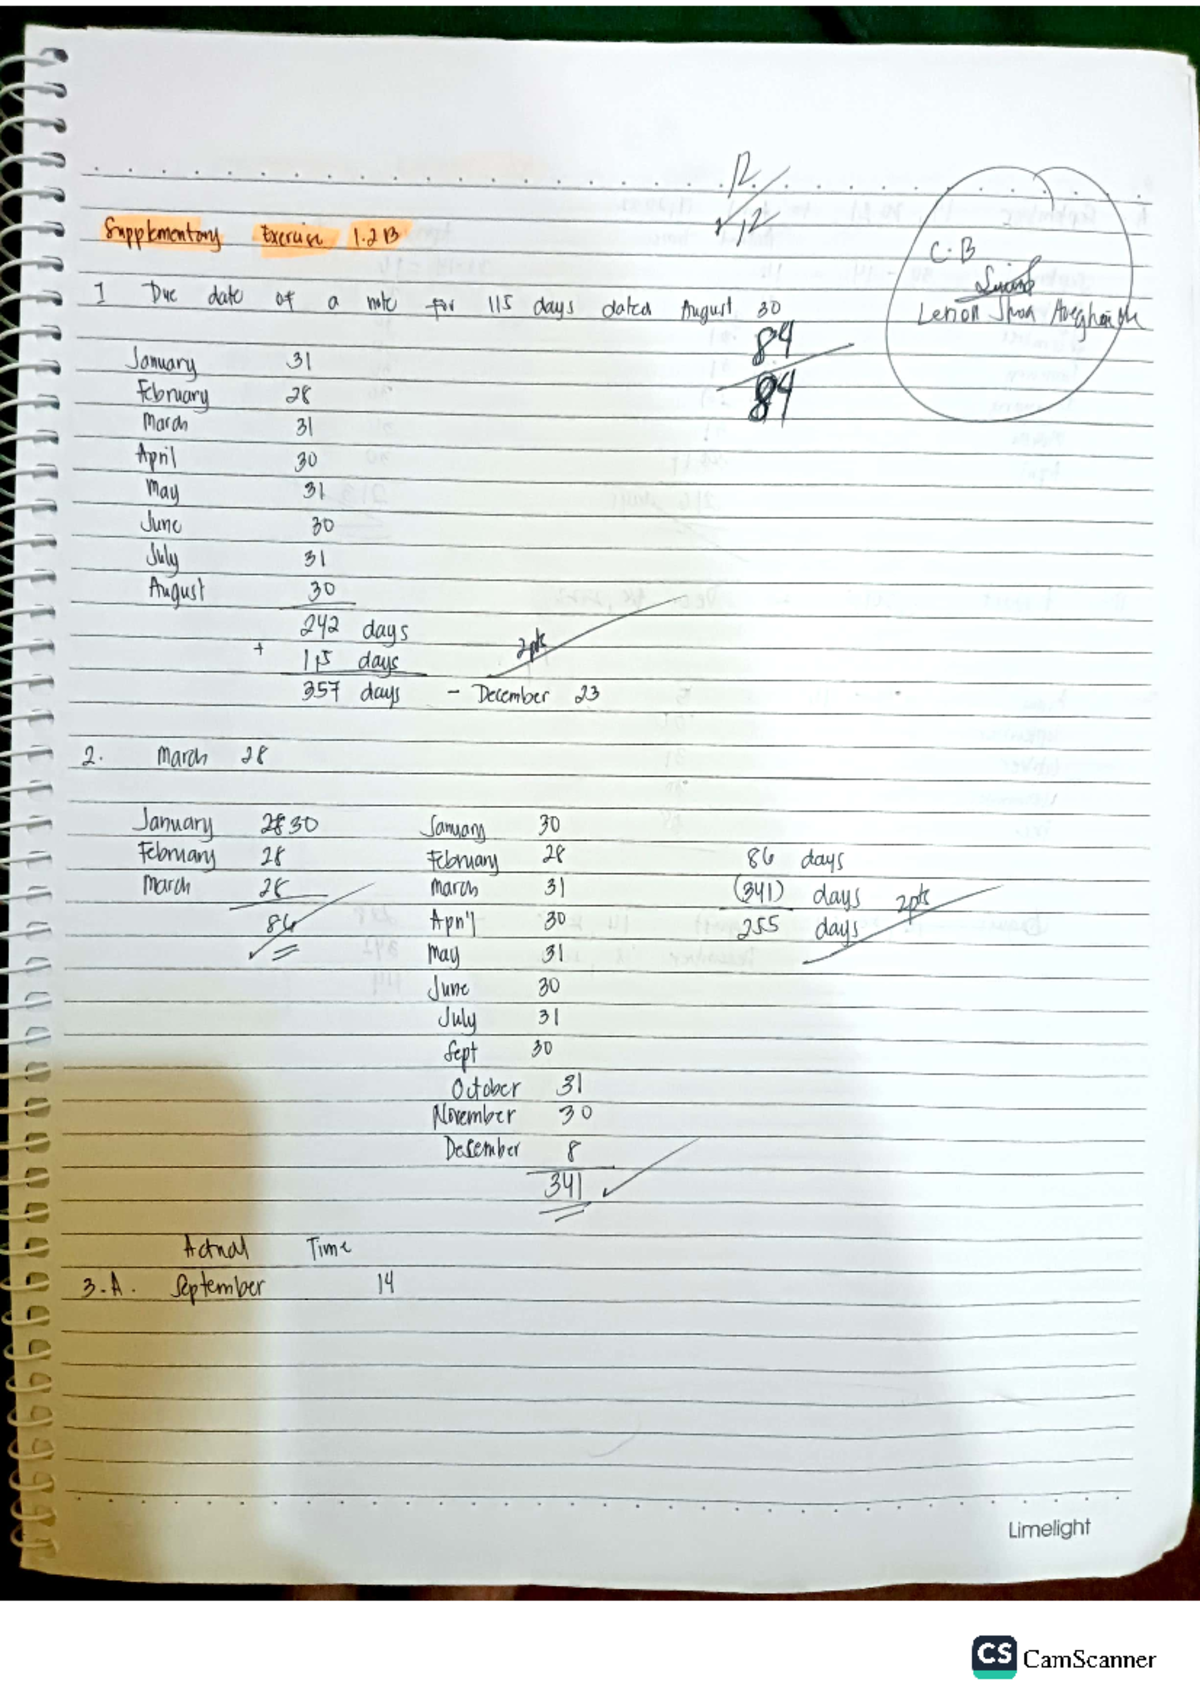 12
12
Supplementary Exercise 1.2 B
C.B
1 Due date of a note for 115 days dated August 30
84
84
January 31
February 28
March 31
April 30
May 31
June 30
July 31
August 30
242 days
+ 115 days 2pts
357 days - December 23
2. March 28
January 2830 January 30
February 28 February 28 86 days
March 28 March 31 (341) days 2pts
86 April 30 255 days
May 31
June 30
July 31
Sept 30
October 31
November 30
December 8
341
Actual Time
3.A. September 14
Limelight
CS CamScanner